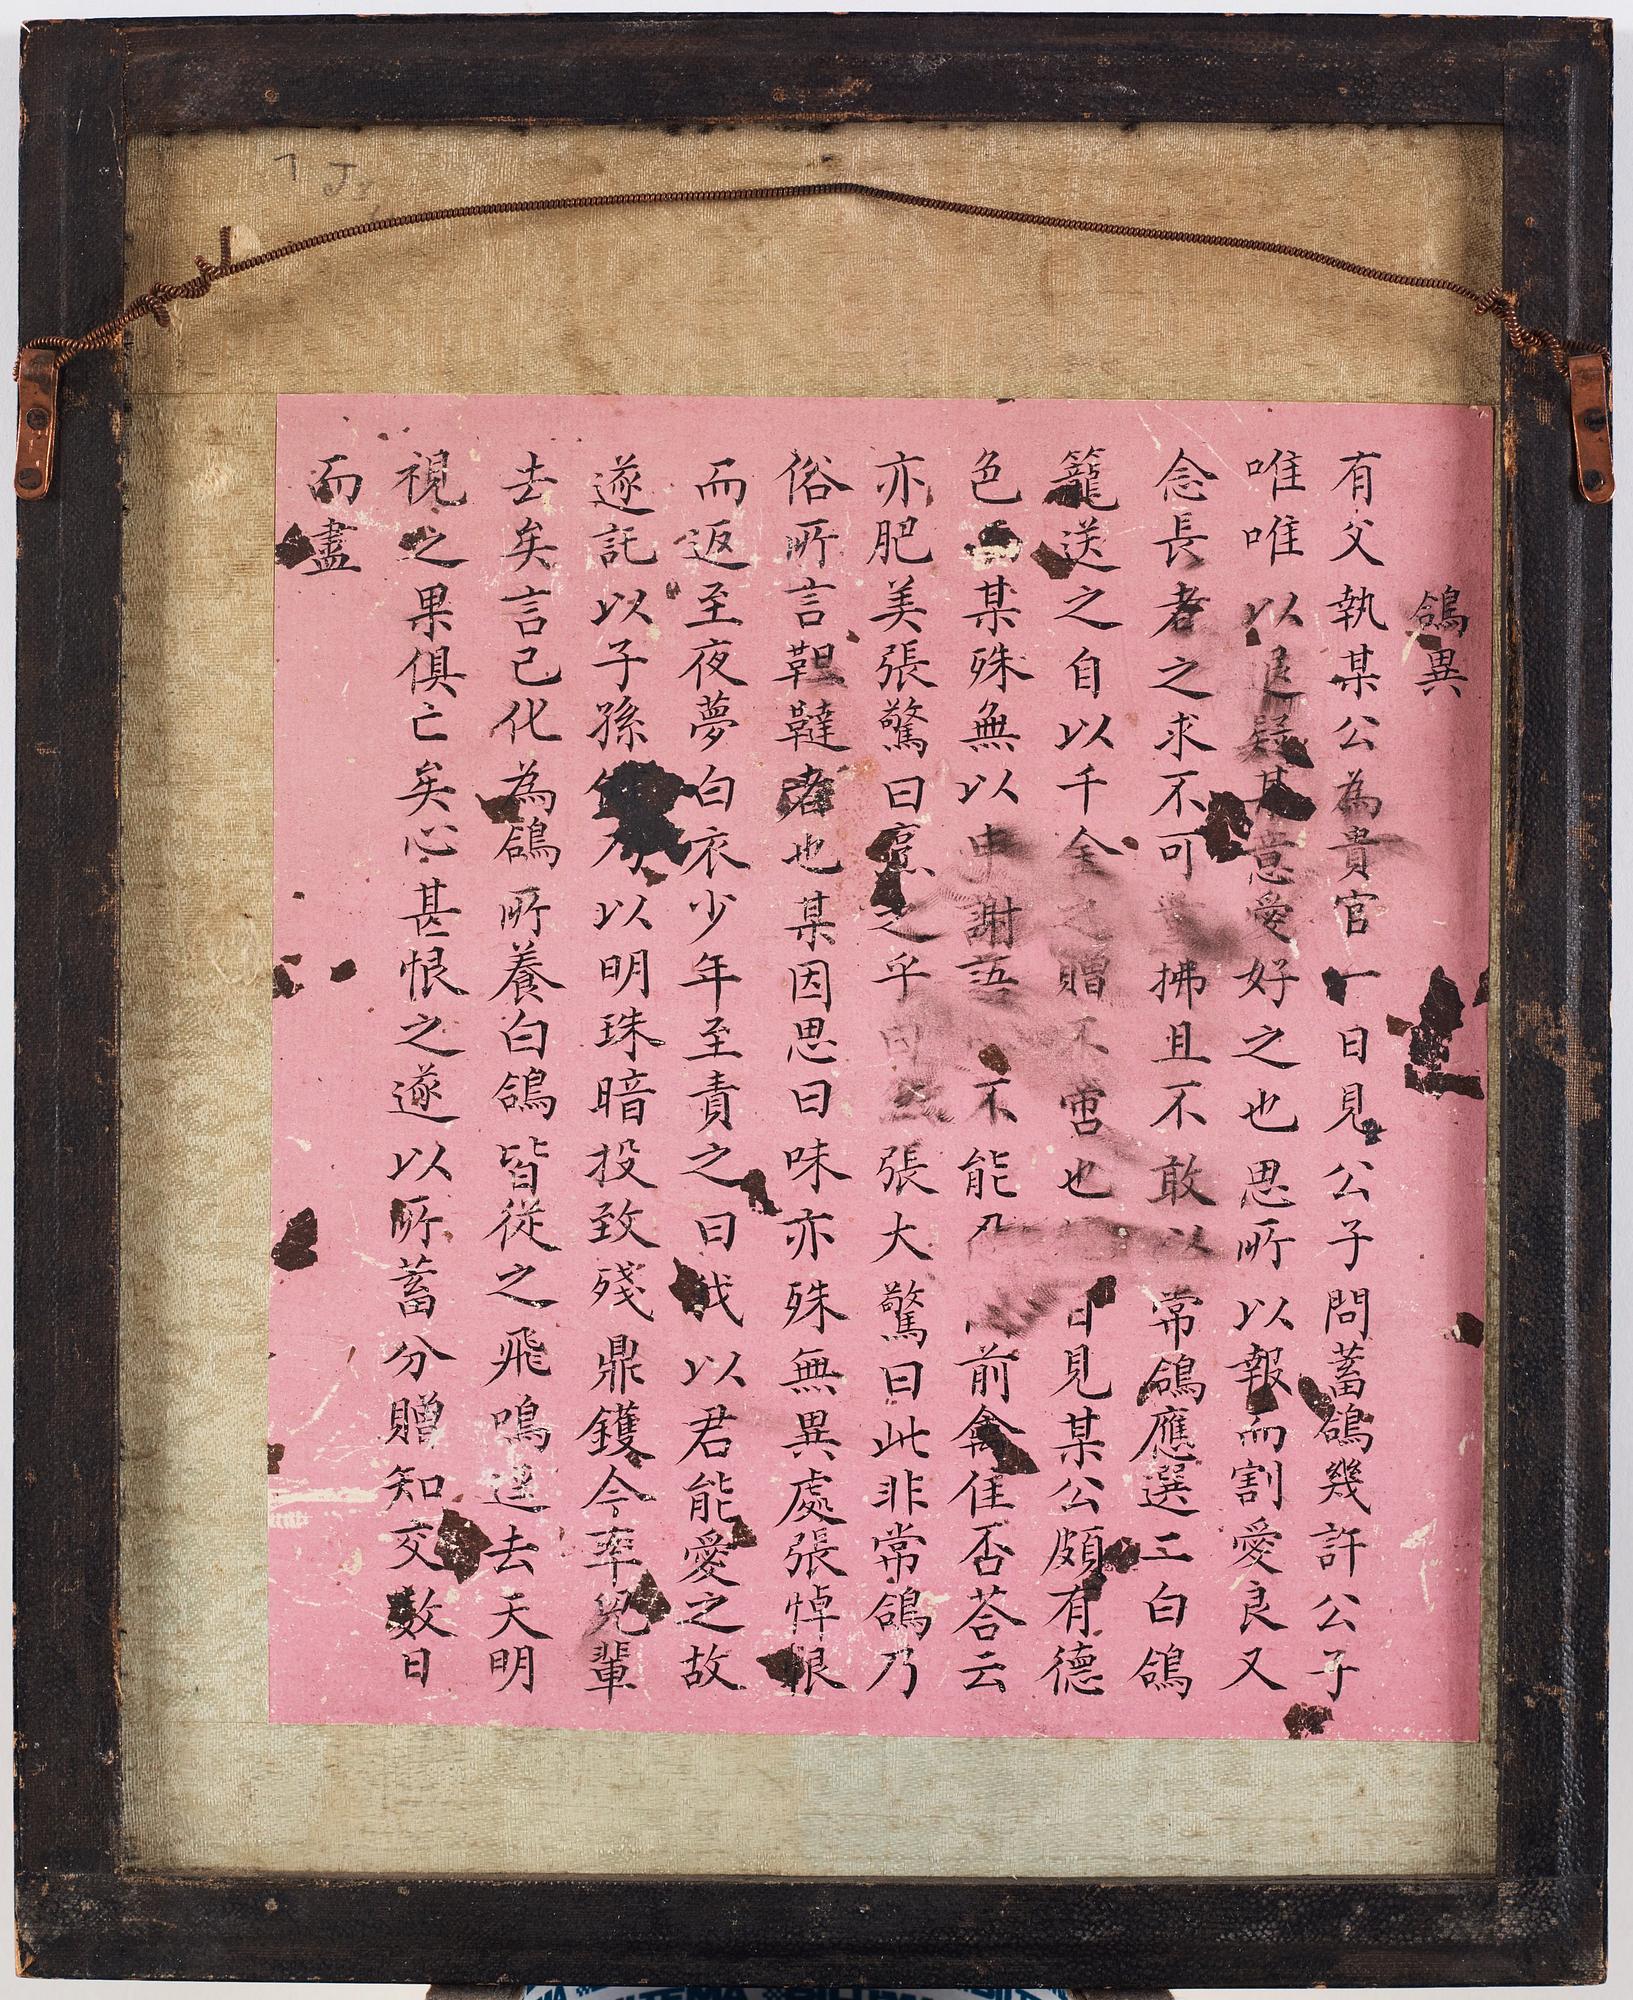 鴿異
有父執某公為貴官一日見公子問蓄鴿幾許公子
唯唯以退疑其意愛好之也思所以報而割愛良又
念長者之求不可重拂且不敢以常鴿應選二白鴿
籠送之自以千金之贈不啻也日見某公頗有德
色某殊無以申謝語心不能乃前禽佳否荅云
亦肥美張驚曰烹之乎曰然張大驚曰此非常鴿乃
俗所言靼韃者也某因思曰味亦殊無異處張悼恨
而返至夜夢白衣少年至責之曰我以君能愛之故
遂託以子孫以明珠暗投致殘鼎鑊今率兒輩
去矣言已化為鴿所養白鴿皆從之飛鳴逕去天明
視之果俱亡矣心甚恨之遂以所蓄分贈知交数日
而盡